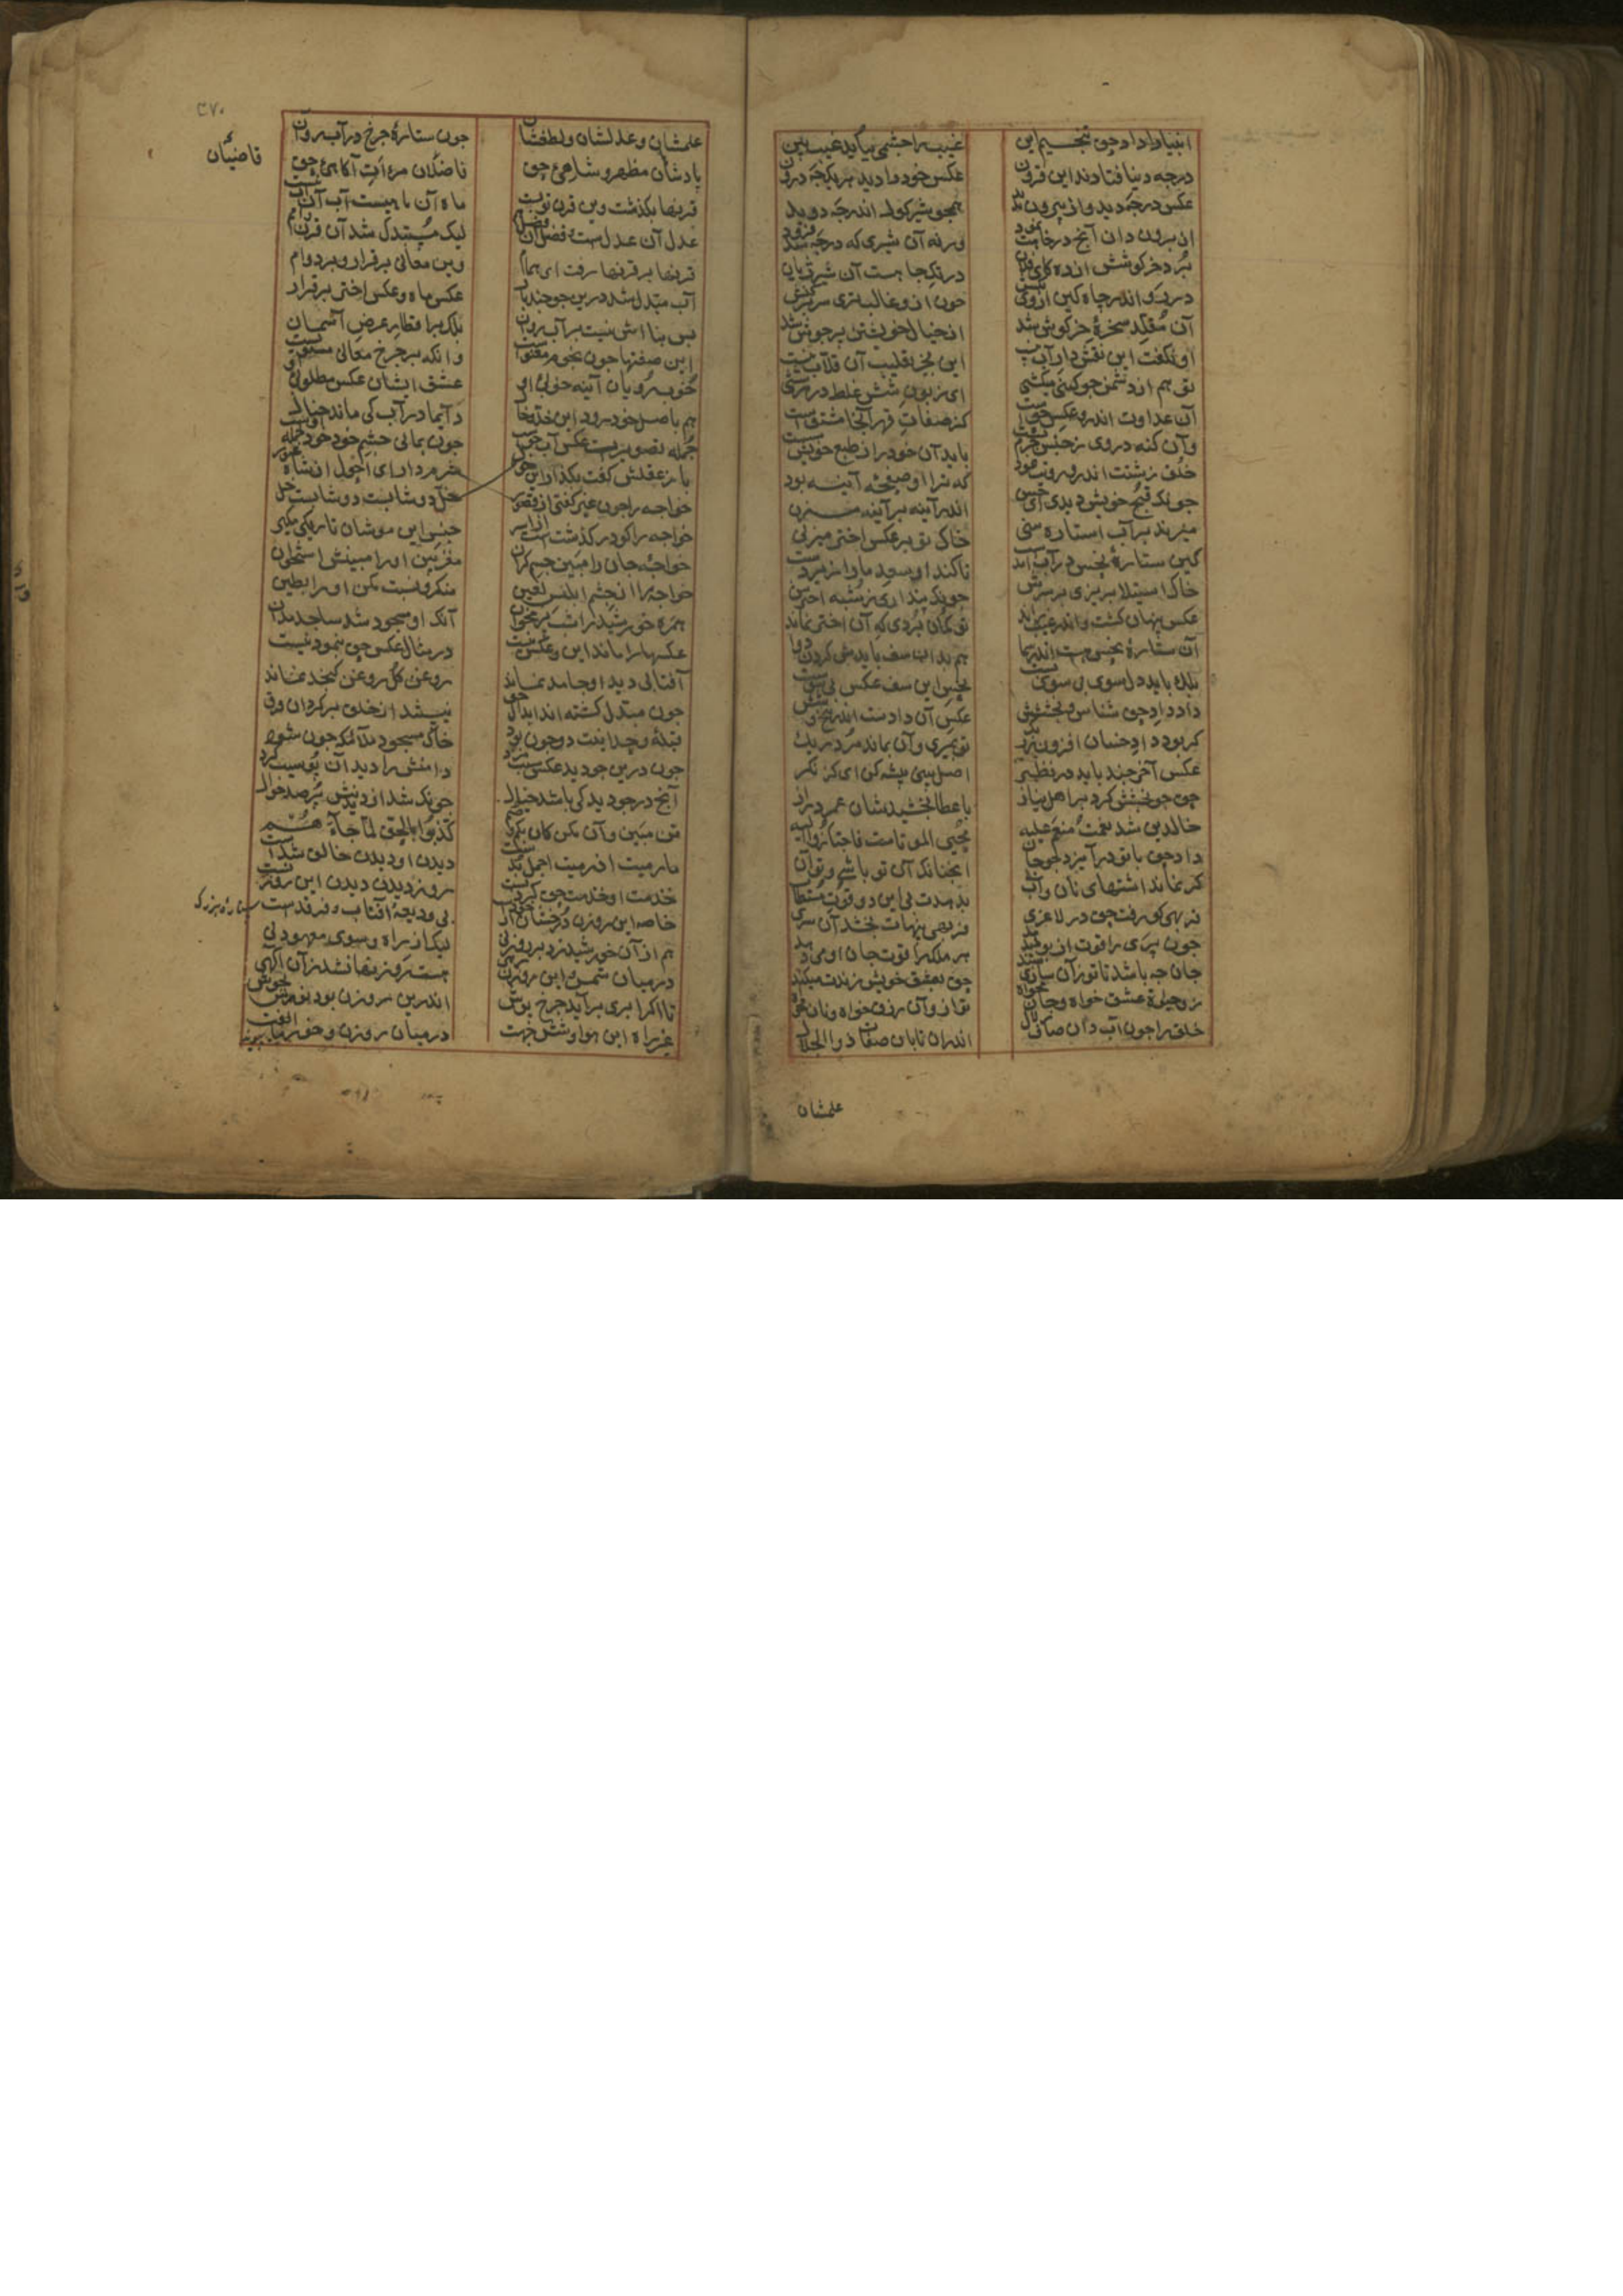 انبیا را داد حق تنجیم این غیب را چشمی بباید غیب بین
درچه دنیا فتادند این قرون عکس خود را دید هر یک چه درون
عکس در چه دید و از بیرون ندید همچو شیر کول اندر چه دوید
از برون دان آنچ در چاهت نمود ورنه آن شیری که درچه شد فرود
برد خرکوشش از ره کای فلان در تک چاهست آن شیر ژیان
در رو اندر چاه کین از وی بکش چون ازو غالبتری سر برکنش
آن مقلد سخره خرکوش شد از خیال خویشتن پر جوش شد
او نکفت این نقش داد آب نیست این بجز تقلیب آن قلاب نیست
تو هم از دشمن چو کینی میکشی ای زبون شش غلط در هر ششی
آن عداوت اندرو عکس حقست کز صفات قهر آنجا مشتقست
وآن کنه در وی ز جنس جرم تست باید آن خو را ز طبع خویش شست
خلق زشتت اندرو رویت نمود که ترا او صفحه آیینه بود
چونک قبح خویش دیدی ای حسن اندر آیینه بر آیینه مزن
میزند بر آب استاره سنی خاک تو بر عکس اختر میزنی
کین ستاره نحس در آب آمدست تا کند او سعد ما را زیردست
خاک استیلا بریزی بر سرش چونک پنداری ز شبهه اخترش
عکس پنهان کشت و اندر غیب راند تو کمان بردی که آن اختر نماند
آن ستاره نحس هست اندر سما هم بدان سو بایدش کردن دوا
بلک باید دل سوی بی سوی بست نحس این سو عکس نحس بی سوست
داد داد حق شناس و بخششش عکس آن دادست اندر پنج و شش
کر بود داد خسان افزون ز ریک تو بمیری وآن بماند مرد ریک
عکس آخر چند باید در نظر اصل بینی پیشه کن ای کژ نکر
حق چو بخشش کرد بر اهل نیاز با عطا بخشیدشان عمر دراز
خالدین شد نعمت و منعم علیه محیی الموتاست فاجتازوا الیه
داد حق با تو در آمیزد چو جان آنچنانک آن تو باشی و تو آن
کر نماند اشتهای نان و آب بدهدت بی این دو قوت مستطاب
فربهی کر رفت حق در لاغری فربهی پنهانت بخشد آن سری
چون پری را قوت از بو میدهد هر ملک را قوت جان او میدهد
جان چه باشد تا تو زآن سازی سند حق بعشق خویش زندت میکند
زو حیات عشق خواه و جان مخواه تو ازو آن رزق خواه و نان مخواه
خلق را چون آب دان صاف و زلال اندر آن تابان صفات ذوالجلال
علمشان
علمشان و عدلشان و لطفشان چون ستاره چرخ در آب روان
پادشاهان مظهر شاهی حق فاضلان مرآت آکاهی حق
قاضیان
قرنها بکذشت وین قرن نویست ماه آن ماهست آب آن آب نیست
عدل آن عدلست و فضل آن فضل هم لیک مستبدل شد آن قرن و امم
قرنها بر قرنها رفت ای همام وین معانی برقرار و بر دوام
آب مبدل شد درین جو چند بار عکس ماه و عکس اختر برقرار
پس بنااش نیست بر آب روان بلک بر اقطار عرض آسمان
این صفتها چون نجوم معنویست دانکه بر چرخ معانی مستویست
خوب رویان آینه خوبی او عشق ایشان عکس مطلوبی او
هم باصل خود رود این خد و خال دایما در آب کی ماند خیال
جمله تصویرست عکس آب جوست چون بمالی چشم خود خود جمله اوست
باز عقلش کفت بکذار این حول خل دوشابست و دوشابست خل
خواجه را چون غیر کفتی از قصور شرم دار ای احول از شاه غیور
خواجه را کو در کذشتست از اثیر جنس این موشان تاریکی مکیر
خواجه جان بین مبین جسم کران مغز بین او را مبینش استخوان
خواجه را از چشم ابلیس لعین منکر و نسبت مکن او را بطین
همره خورشید را شب پر مخوان آنک او مسجود شد ساجد مدان
عکسها را ماند این و عکس نیست در مثال عکس حق بنمودنیست
آفتابی دید او جامد نماند روغن کل روغن کنجد نماند
چون مبدل کشته اند ابدال حق نیستند از خلق بر کردان ورق
قبله وحدانیت دو چون بود خاک مسجود ملایک چون شود
چون درین جو دید عکس سیب مرد دامنش را دید آن پر سیب کرد
آنچ در جو دید کی باشد خیال چونک شد از دیدنش پر صد جوال
تن مبین و آن مکن کان بکم و صم کذبوا بالحق لما جاءهم
ما رمیت اذ رمیت احمد بدست دیدن او دیدن خالق شدست
خدمت او خدمت حق کردنست روز دیدن دیدن این روزنست
خاصه این روزن درخشان از خودست نی ودیعه آفتاب و فرقدست
ستاره بزرک
هم از آن خورشید زد بر روزنی لیک از راه و سوی معهود نی
در میان شمس و این روزن رهی هست روزنها نشد زآن آکهی
تا اکر ابری برآید چرخ پوش اندرین روزن بود نورش بجوش
غیر راه این هوا و شش جهت در میان روزن و خور مالفت